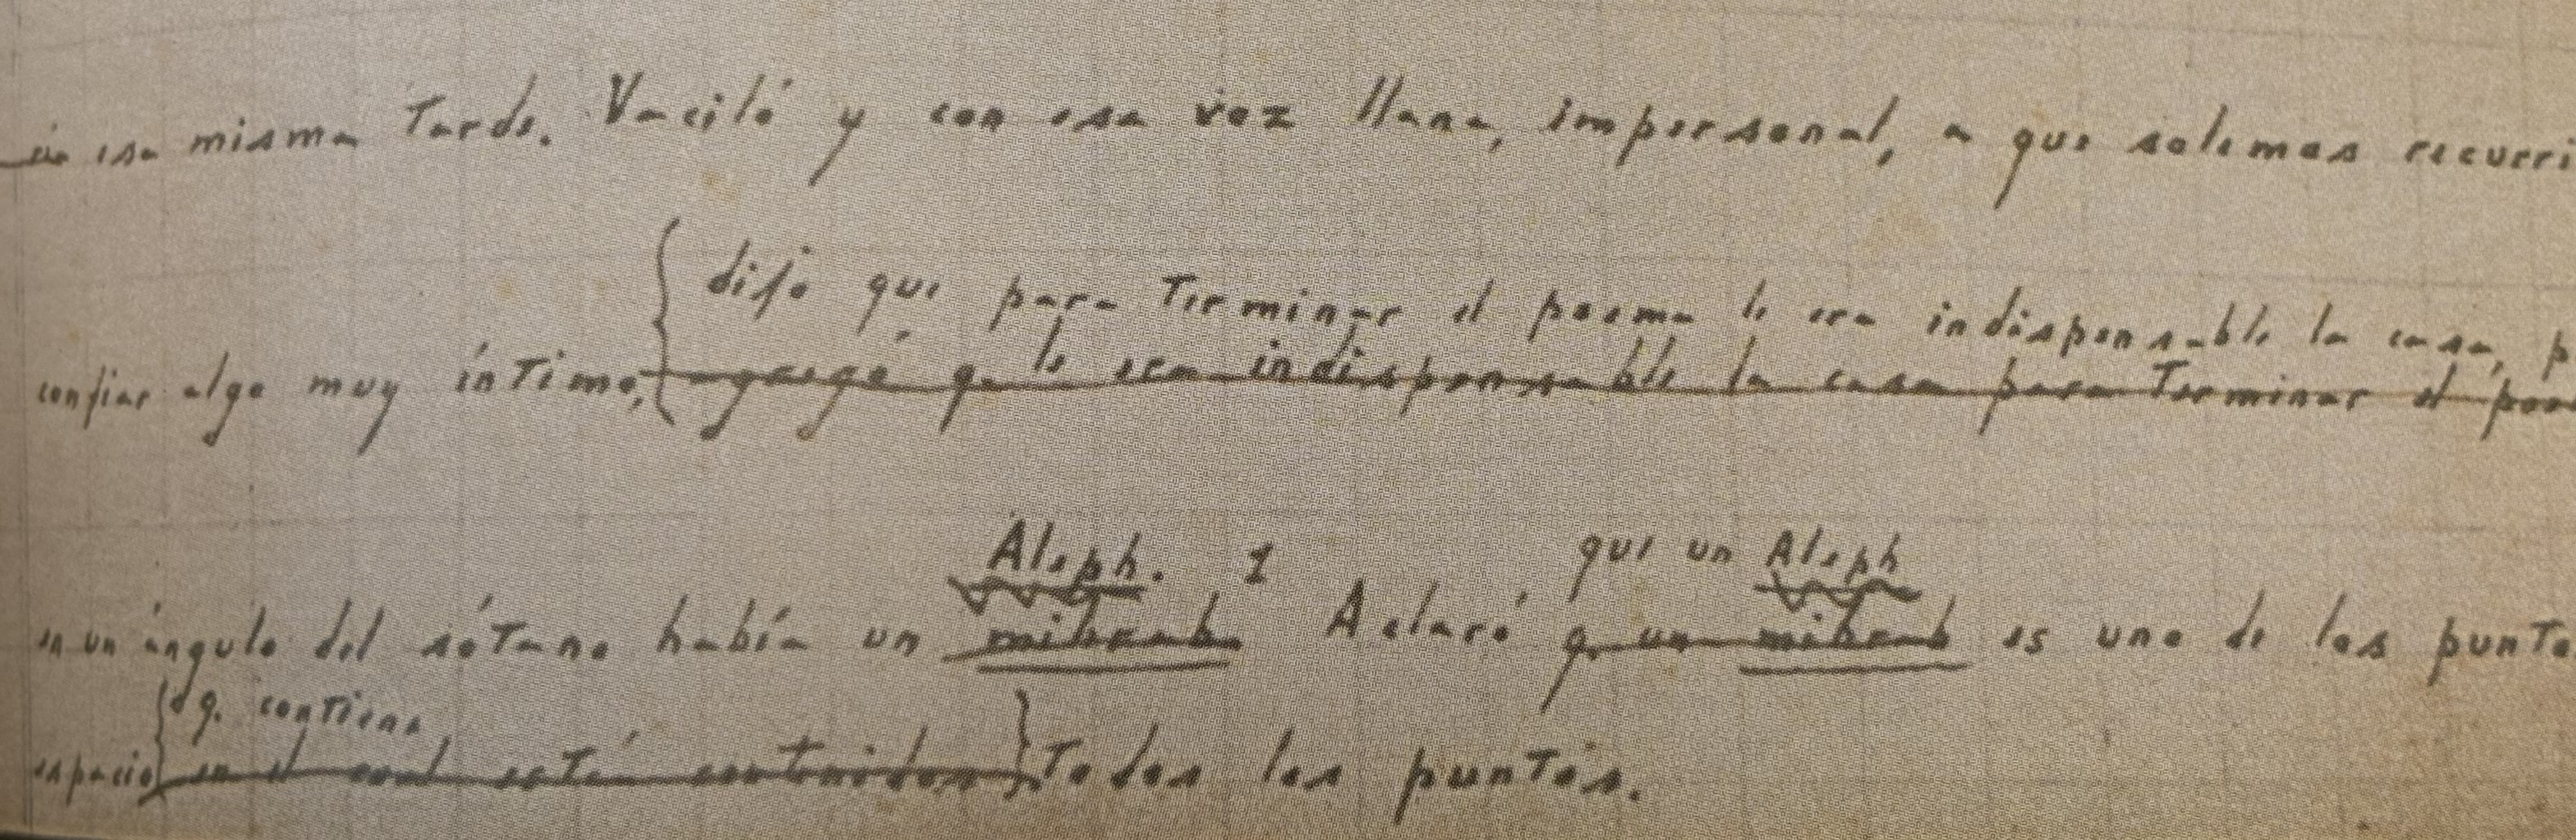 esa misma tarde. Vaciló y con esa voz llana, impersonal, a que solemos recurri
dijo que para terminar el poema le era indispensable la casa, p
confiar algo muy íntimo, agregó q. le era indispensable la casa para terminar el poe
Aleph. 1 que un Aleph
en un ángulo del sótano había un mihrab Aclaró q. un mihrab es uno de los punto
q. contiene
espacio en el cual están contenidos todos los puntos.